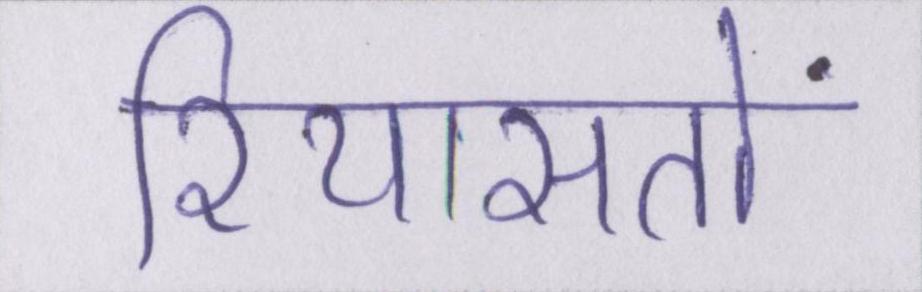 रियासतों